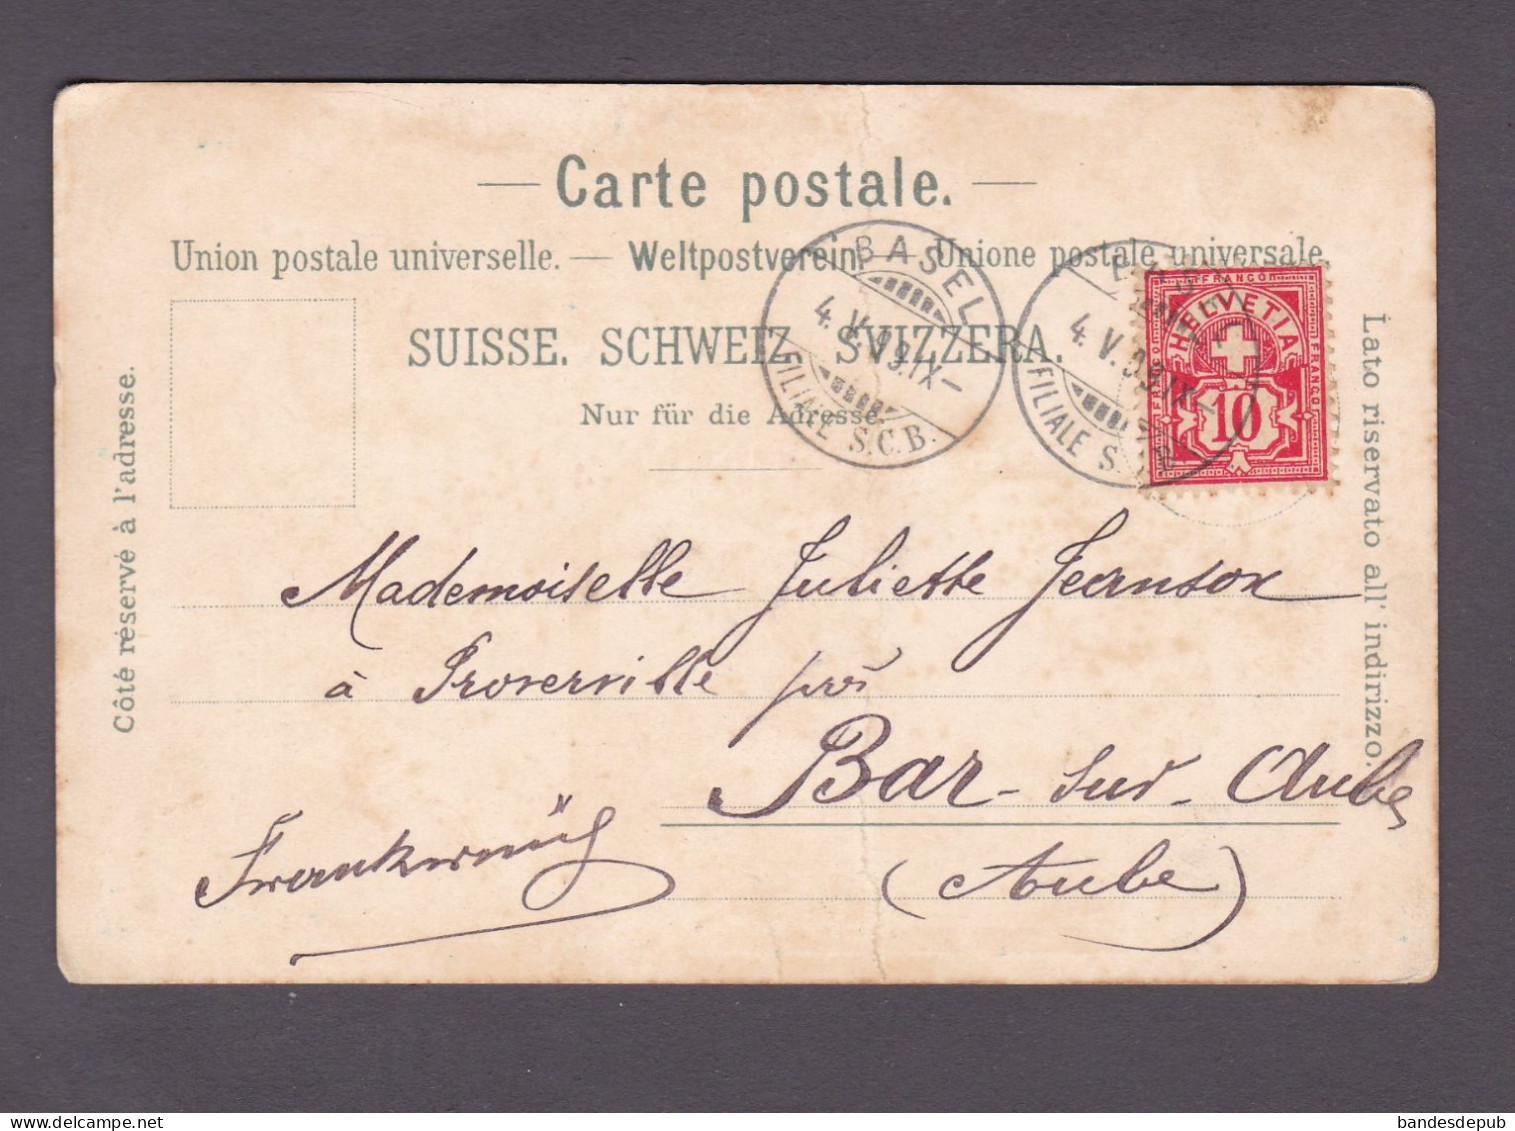 — Carte postale. —
Union postale universelle. — Weltpostverein. — Unione postale universale.
SUISSE. SCHWEIZ. SVIZZERA.
Nur für die Adresse.
Côté réservé à l'adresse.
Lato riservato all' indirizzo.
BASEL
4.V.99.IX–
FILIALE S.C.B.
BASEL
4.V.99.IX–
FILIALE S.C.B.
FRANCO
FRANCO
FRANCO
HELVETIA
10
Mademoiselle Juliette Jeanson
à Proverville près
Bar-sur-Aube
(Aube)
Frankreich
bandesdepub